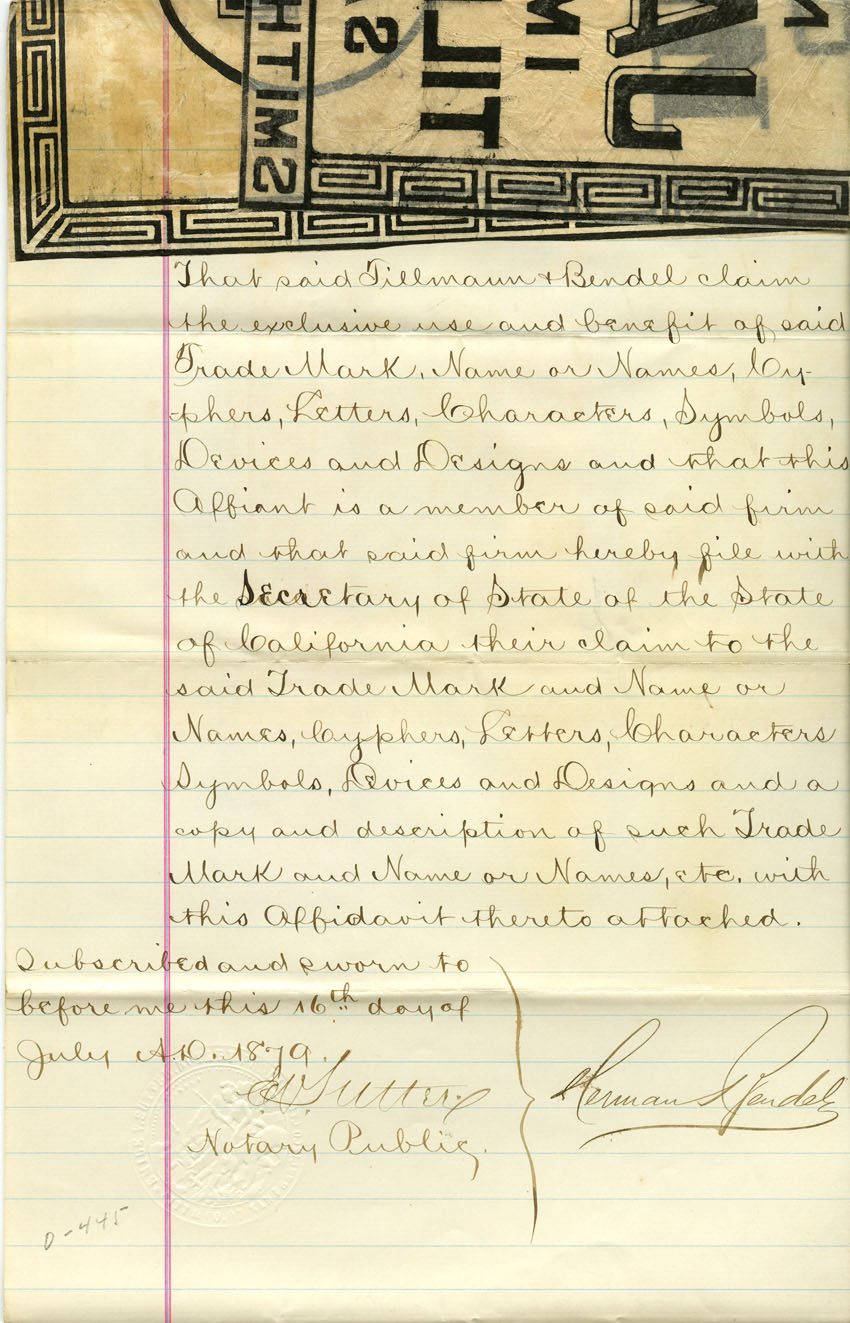 SMITH
S
TILL
MI
AU
N
That said Tillmann & Bendel claim
the exclusive use and benefit of said
Trade Mark, Name or Names, Cy-
-phers, Letters, Characters, Symbols,
Devices and Designs and that this
Affiant is a member of said firm
and that said firm hereby file with
the Secretary of State of the State
of California their claim to the
said Trade Mark and Name or
Names, Cyphers, Letters, Characters
Symbols, Devices and Designs and a
copy and description of such Trade
Mark and Name or Names, etc. with
this Affidavit thereto attached.
Subscribed and sworn to
before me this 16th day of
July A.D. 1879.
E.V. Sutter
Notary Public.
Herman L Bendel
0-445